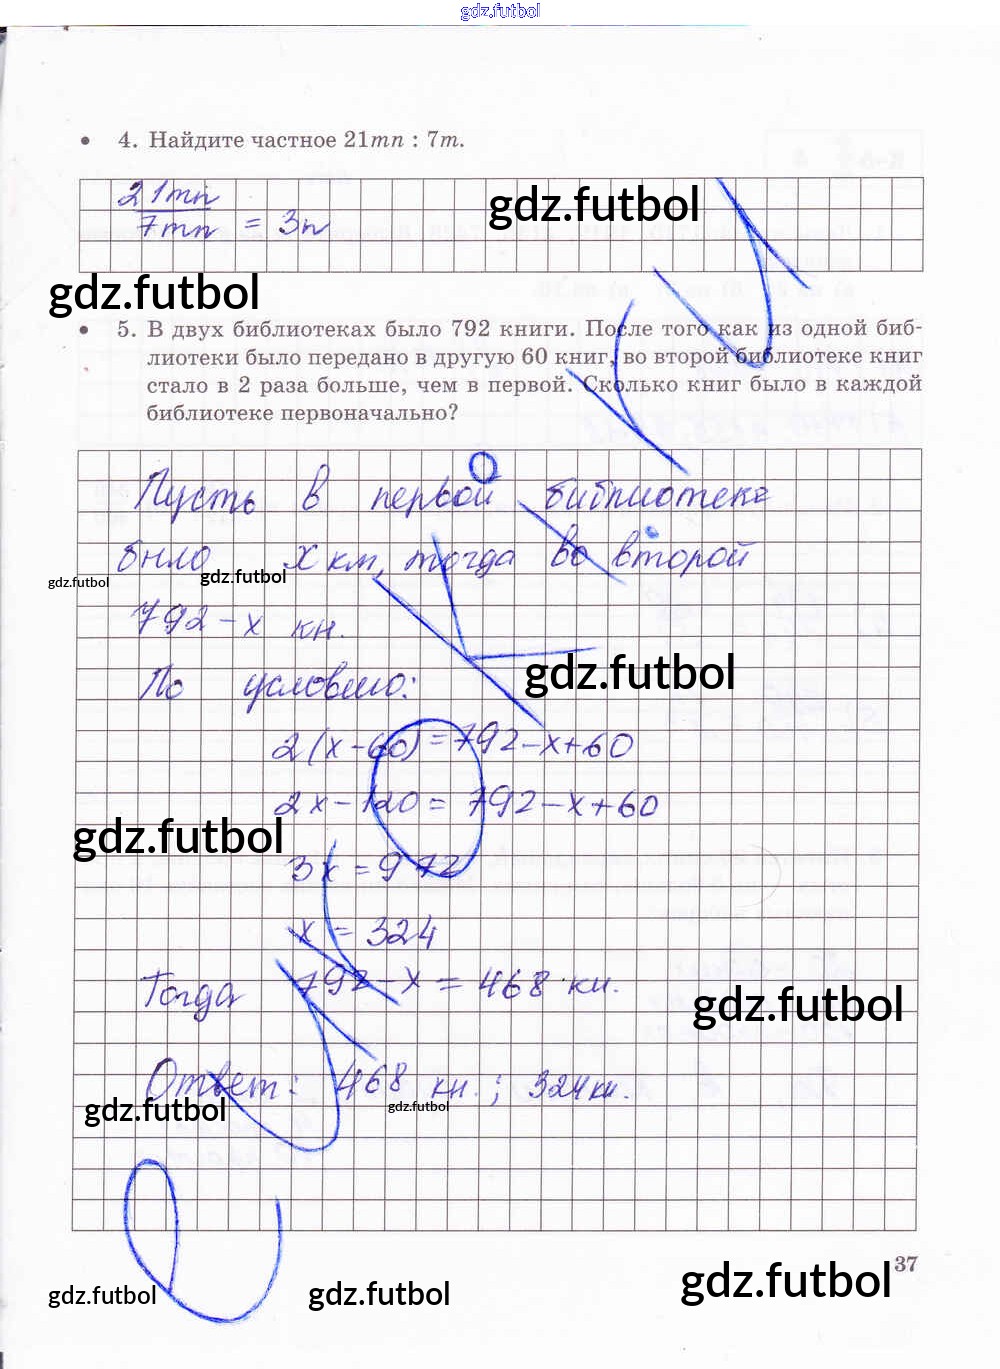 gdz.futbol
• 4. Найдите частное 21mn : 7m.
21mn
7mn = 3n
gdz.futbol
gdz.futbol
• 5. В двух библиотеках было 792 книги. После того как из одной биб-
лиотеки было передано в другую 60 книг, во второй библиотеке книг
стало в 2 раза больше, чем в первой. Сколько книг было в каждой
библиотеке первоначально?
Пусть в первой библиотеке
было x км, тогда во второй
gdz.futbol
gdz.futbol
792-x кн.
По условию:
gdz.futbol
2(x-60)=792-x+60
2x-120=792-x+60
gdz.futbol
3x=972
x=324
Тогда 792-x=468 кн.
gdz.futbol
Ответ: 468 кн.; 324кн.
gdz.futbol
gdz.futbol
37
gdz.futbol
gdz.futbol
gdz.futbol